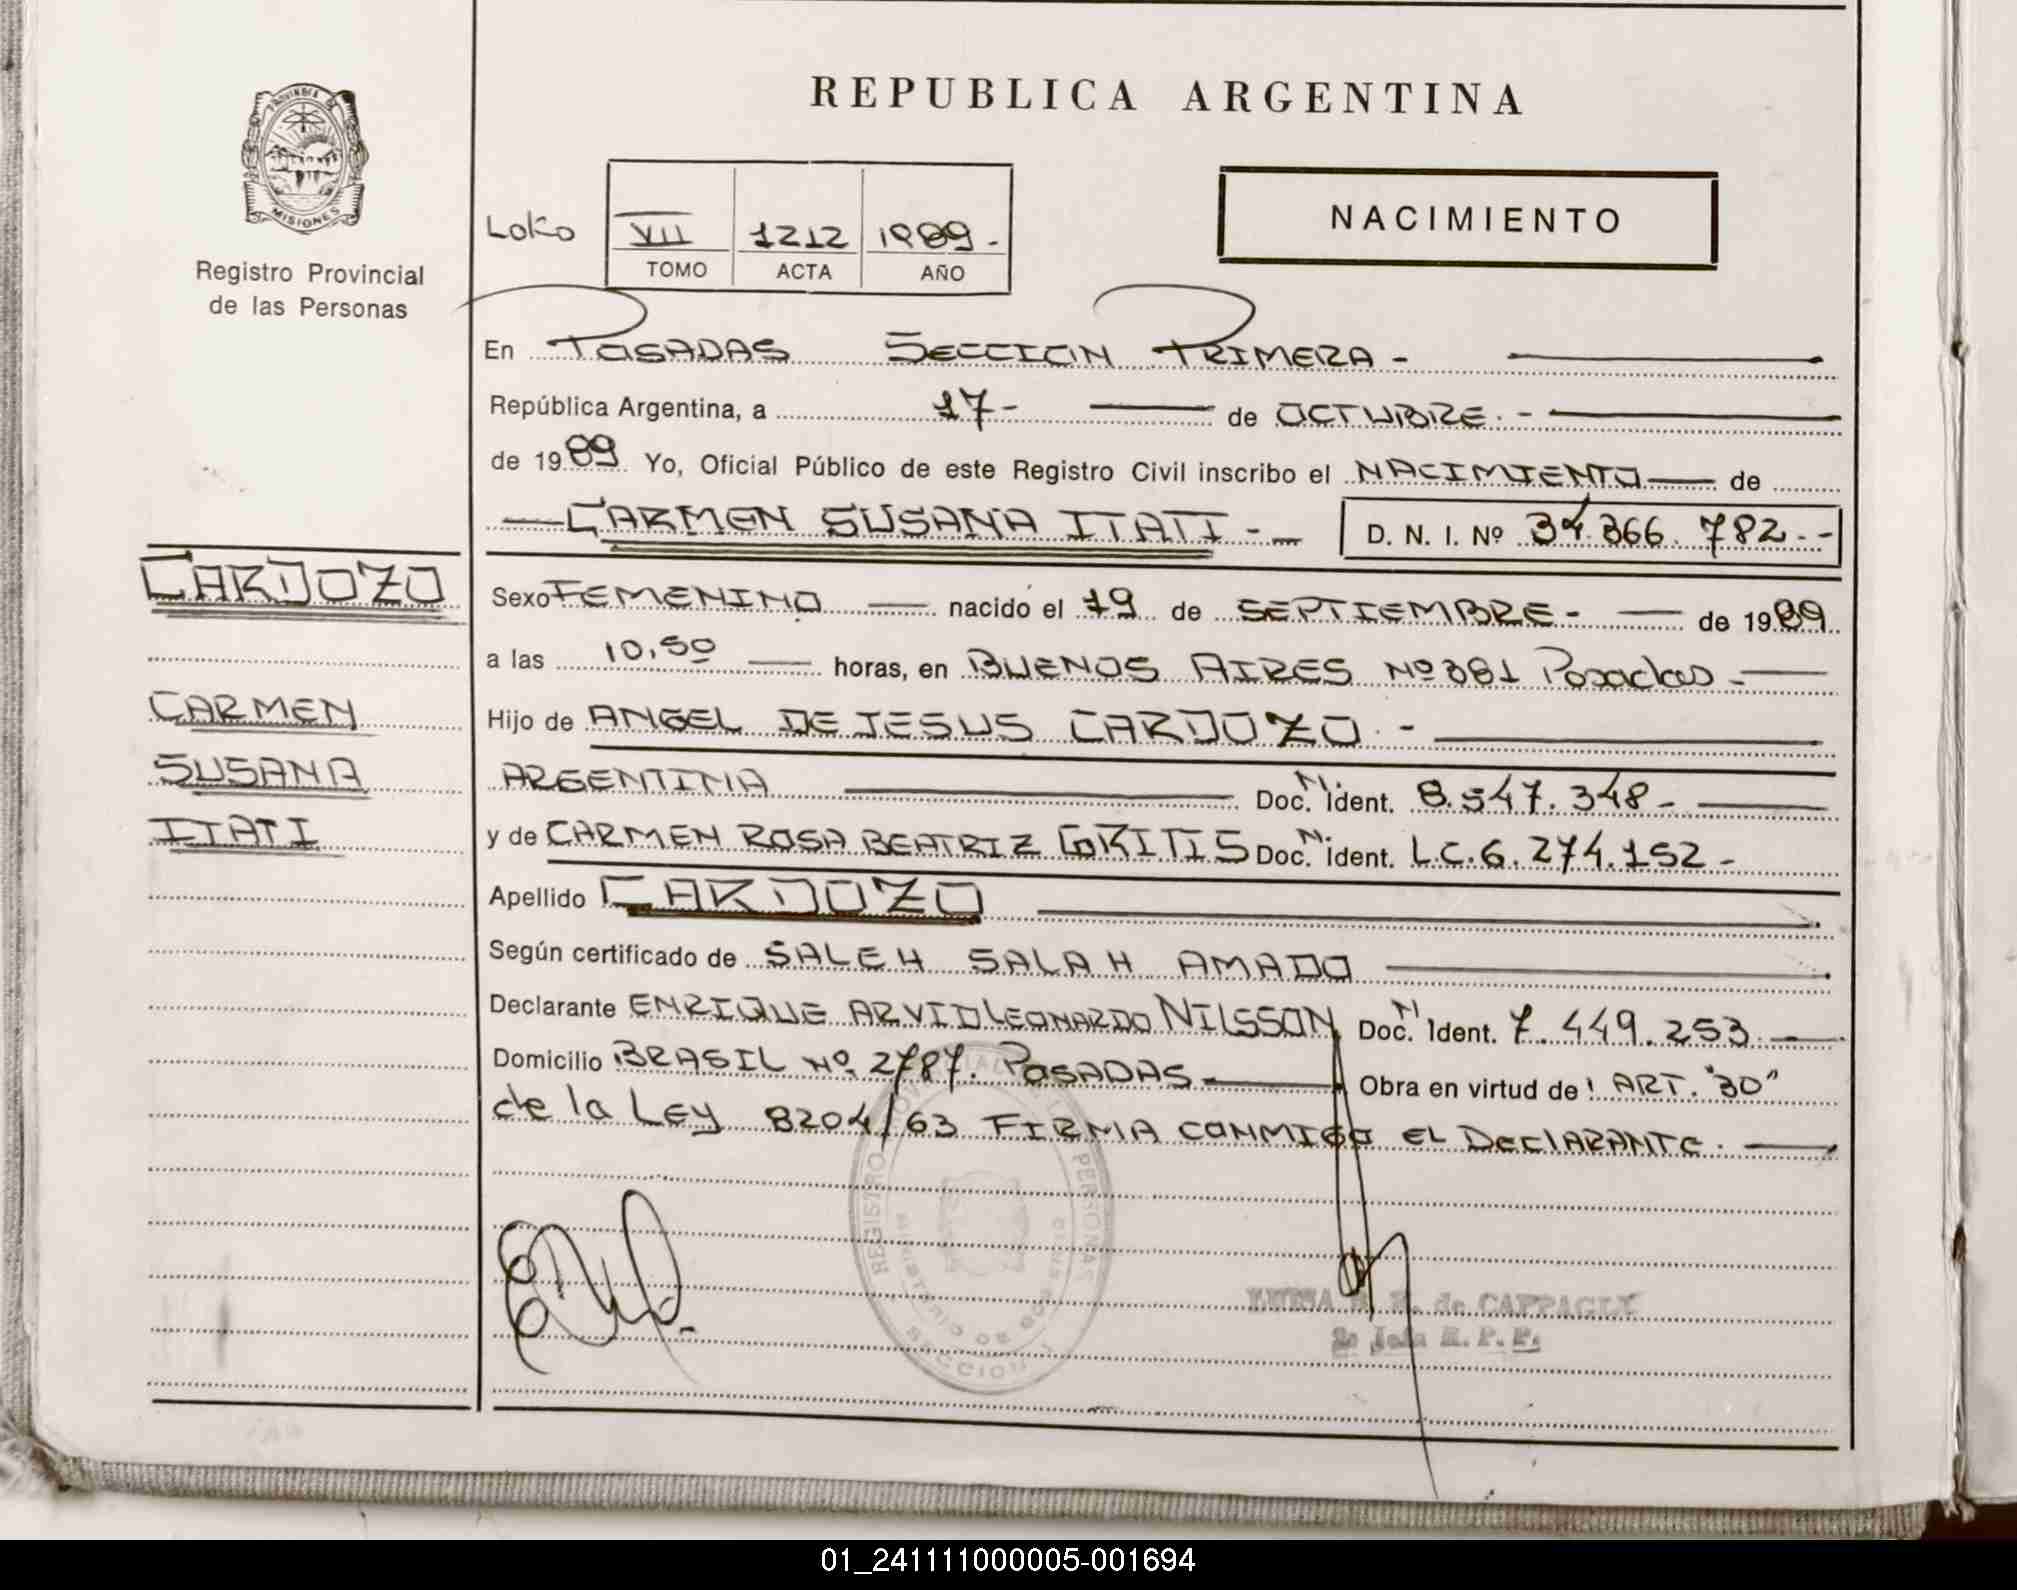 REPUBLICA ARGENTINA
PROVINCIA DE
MISIONES
Registro Provincial
de las Personas
NACIMIENTO
Loko VII 1212 1989.-
TOMO ACTA AÑO
En POSADAS SECCION PRIMERA-
República Argentina, a 17- de OCTUBRE.-
de 1989 Yo, Oficial Público de este Registro Civil inscribo el NACIMIENTO de
CARMEN SUSANA ITATI-
D. N. I. Nº 34.366.782.-
CARDOZO
CARMEN
SUSANA
ITATI
Sexo FEMENINO nacido el 19 de SEPTIEMBRE- de 1989
a las 10,50 horas, en BUENOS AIRES Nº381 Posadas-
Hijo de ANGEL DE JESUS CARDOZO.-
ARGENTINA Doc. N. ident. 8.547.348-
y de CARMEN ROSA BEATRIZ GRITIS Doc. N. ident. L.C.6.274.152-
Apellido CARDOZO
Según certificado de SALEH SALAH AMADO
Declarante ENRIQUE ARVID LEONARDO NILSSON Doc. N Ident. 7.449.253
Domicilio BRASIL Nº 2787. POSADAS Obra en virtud de: ART. "30"
de la LEY 8204/63 FIRMA CONMIGO EL DECLARANTE.
REGISTRO PROVINCIAL DE LAS PERSONAS
MINISTERIO DE GOBIERNO
SECCION 1
LUISA de CAPPAGLY
2º Jefa R. P. P.
01_241111000005-001694